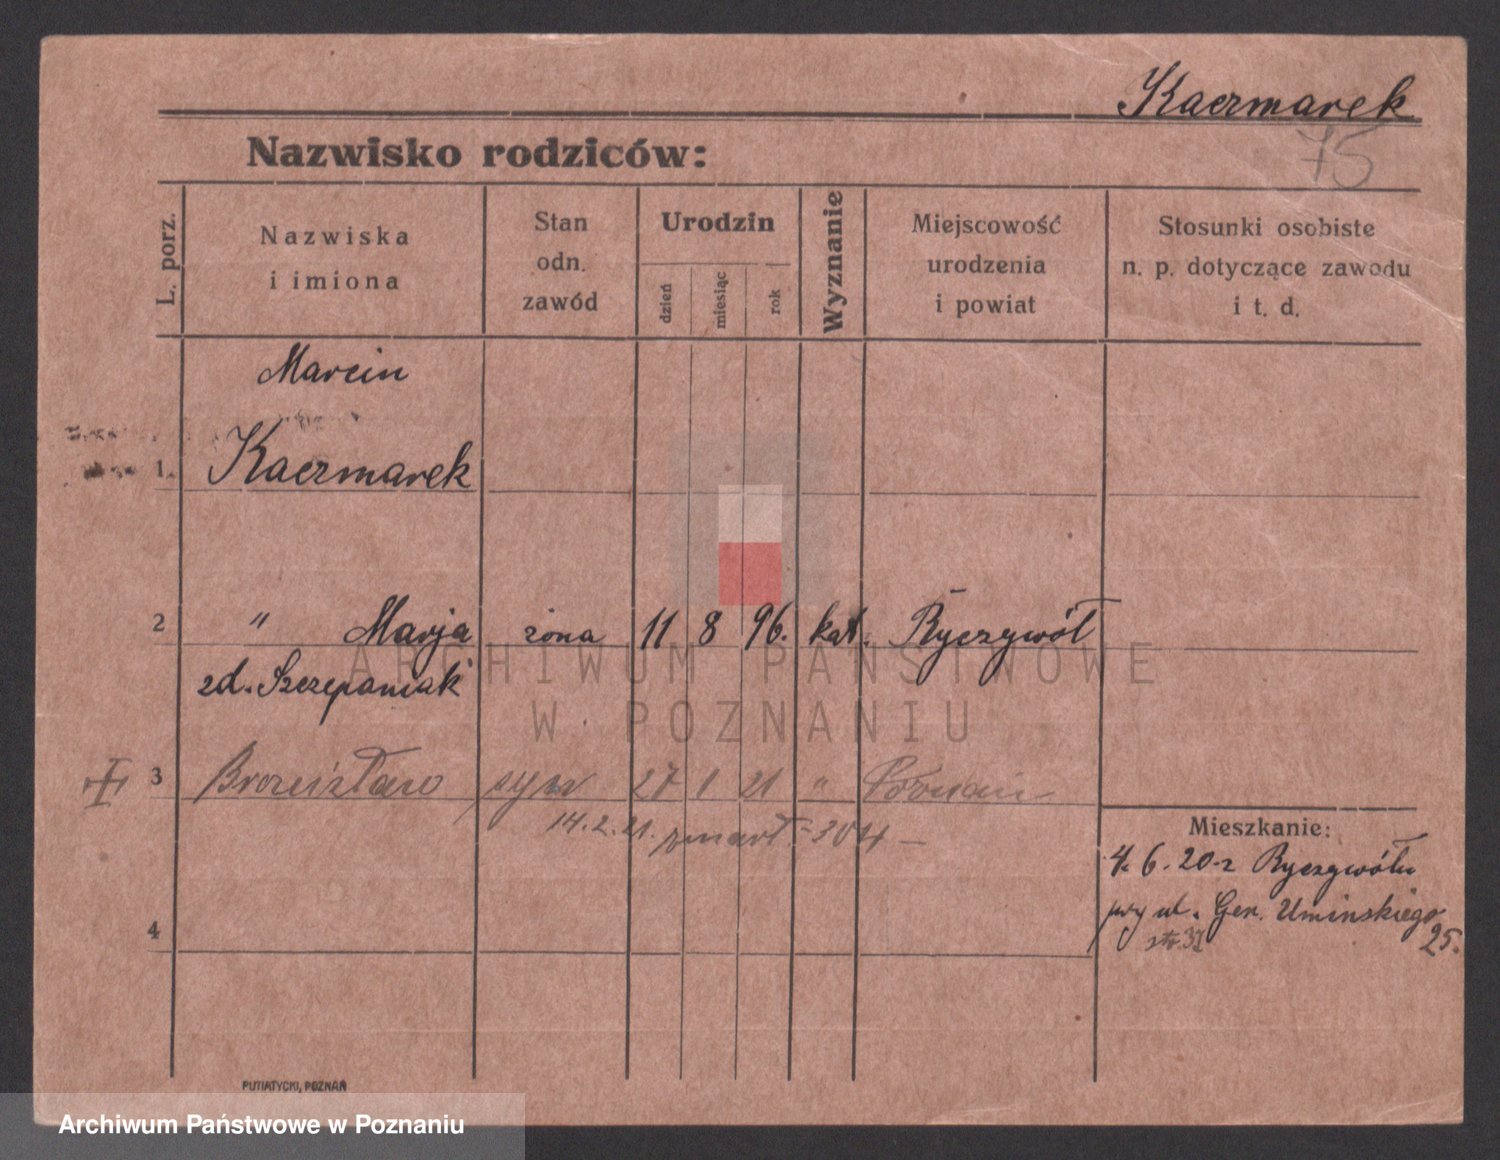 Kaczmarek
75
Nazwisko rodziców:
L. porz.
Nazwiska
i imiona
Stan
odn.
zawód
Urodzin
dzień
miesiąc
rok
Wyznanie
Miejscowość
urodzenia
i powiat
Stosunki osobiste
n. p. dotyczące zawodu
i t. d.
Marcin
1. Kaczmarek
2 " Marja żona 11 8 96. kat. Ryczywół
zd. Szczepaniak
3 Bronisław syn 27 1 21 " Poznań
14.2.21. zmarł
Mieszkanie:
4. 6. 20 z Ryczywółu
przy ul. Gen. Uminskiego
25.
4
PUTIATYCKI, POZNAŃ
ARCHIWUM PAŃSTWOWE
W POZNANIU
Archiwum Państwowe w Poznaniu